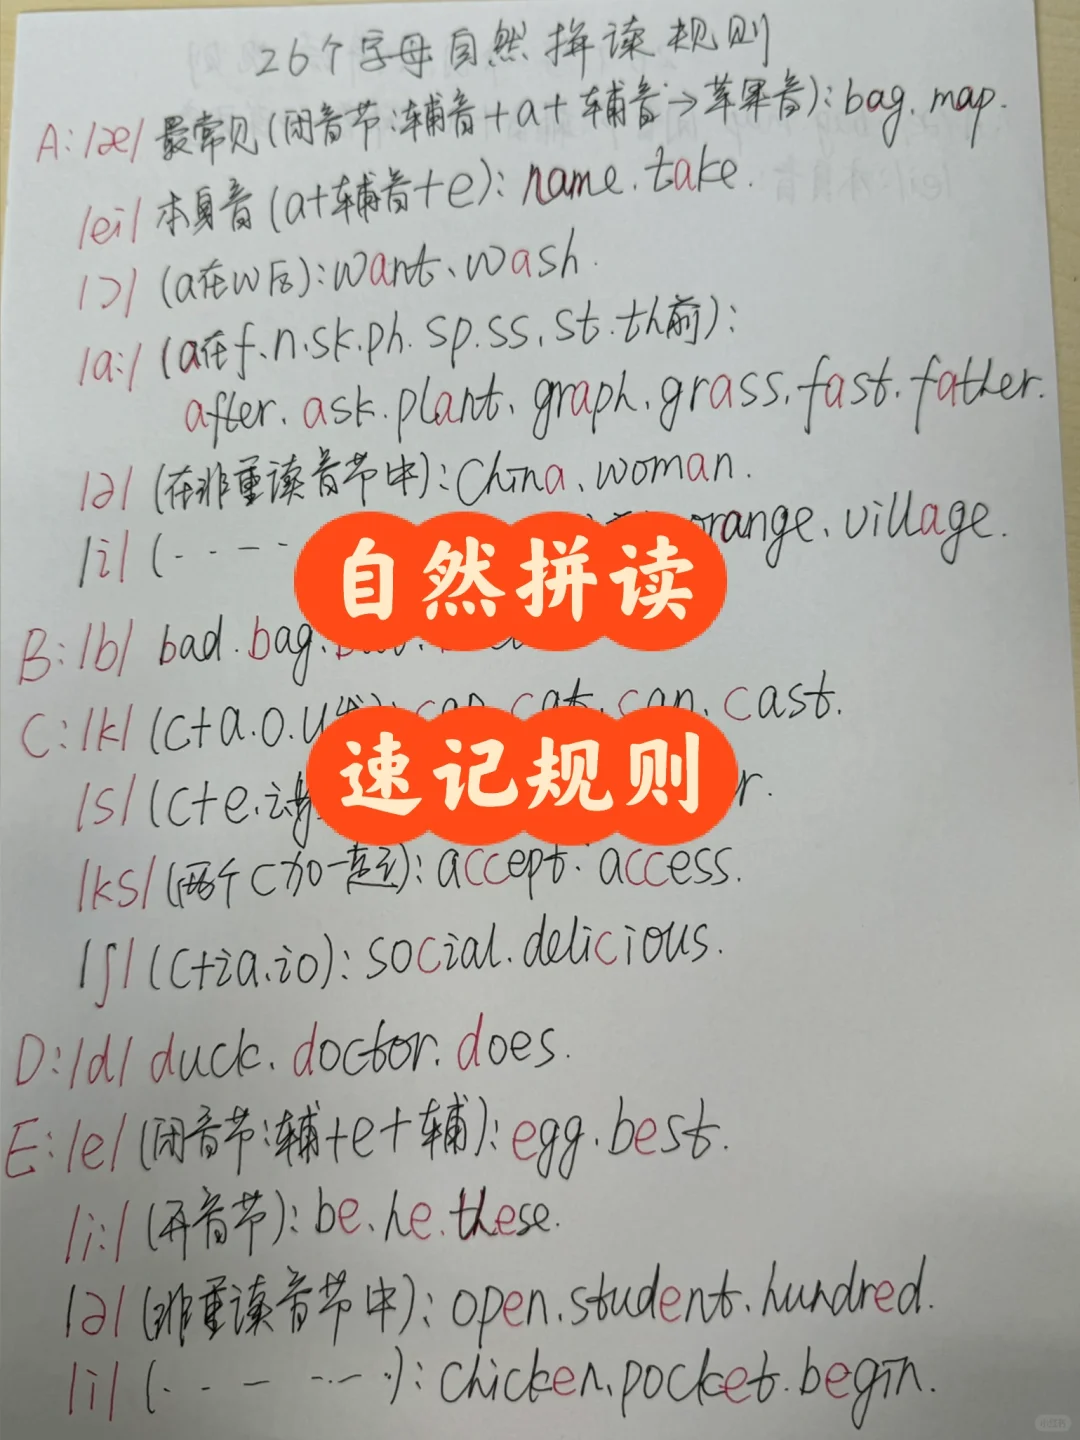 26个字母自然拼读规则
A:/æ/ 最常见(闭音节:辅音+a+辅音→苹果音):bag.map.
/ei/ 本身音(a+辅音+e):name.take.
/ɔ/ (a在w后):want、wash.
/a:/ (a在f.n.sk.ph.sp.ss.st.th前):
after.ask.plant.graph.grass.fast.father.
/ə/ (在非重读音节中):China、woman.
/i/ (----- orange、village.
自然拼读
B:/b/ bad.bag.
C:/k/ (c+a.o.u :cap.cat.can.cast.
速记规则
/s/ (c+e.i r.
/ks/ (两个c加一起):accept.access.
/ʃ/ (c+ia.io):social.delicious.
D:/d/ duck.doctor.does.
E:/e/ (闭音节:辅+e+辅):egg.best.
/i:/ (开音节):be.he.these.
/ə/ (非重读音节中):open.student.hundred.
/i/ (------):chicken.pocket.begin.